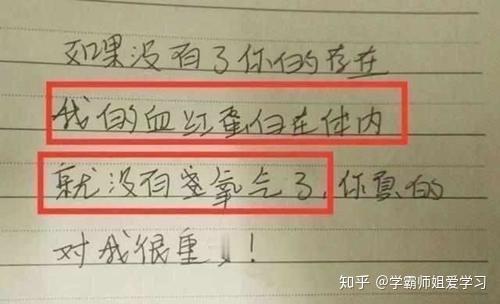 如果没有了你的存在
我的血红蛋白在体内
就没有氧气了,你真的
对我很重!
知乎 @学霸师姐爱学习